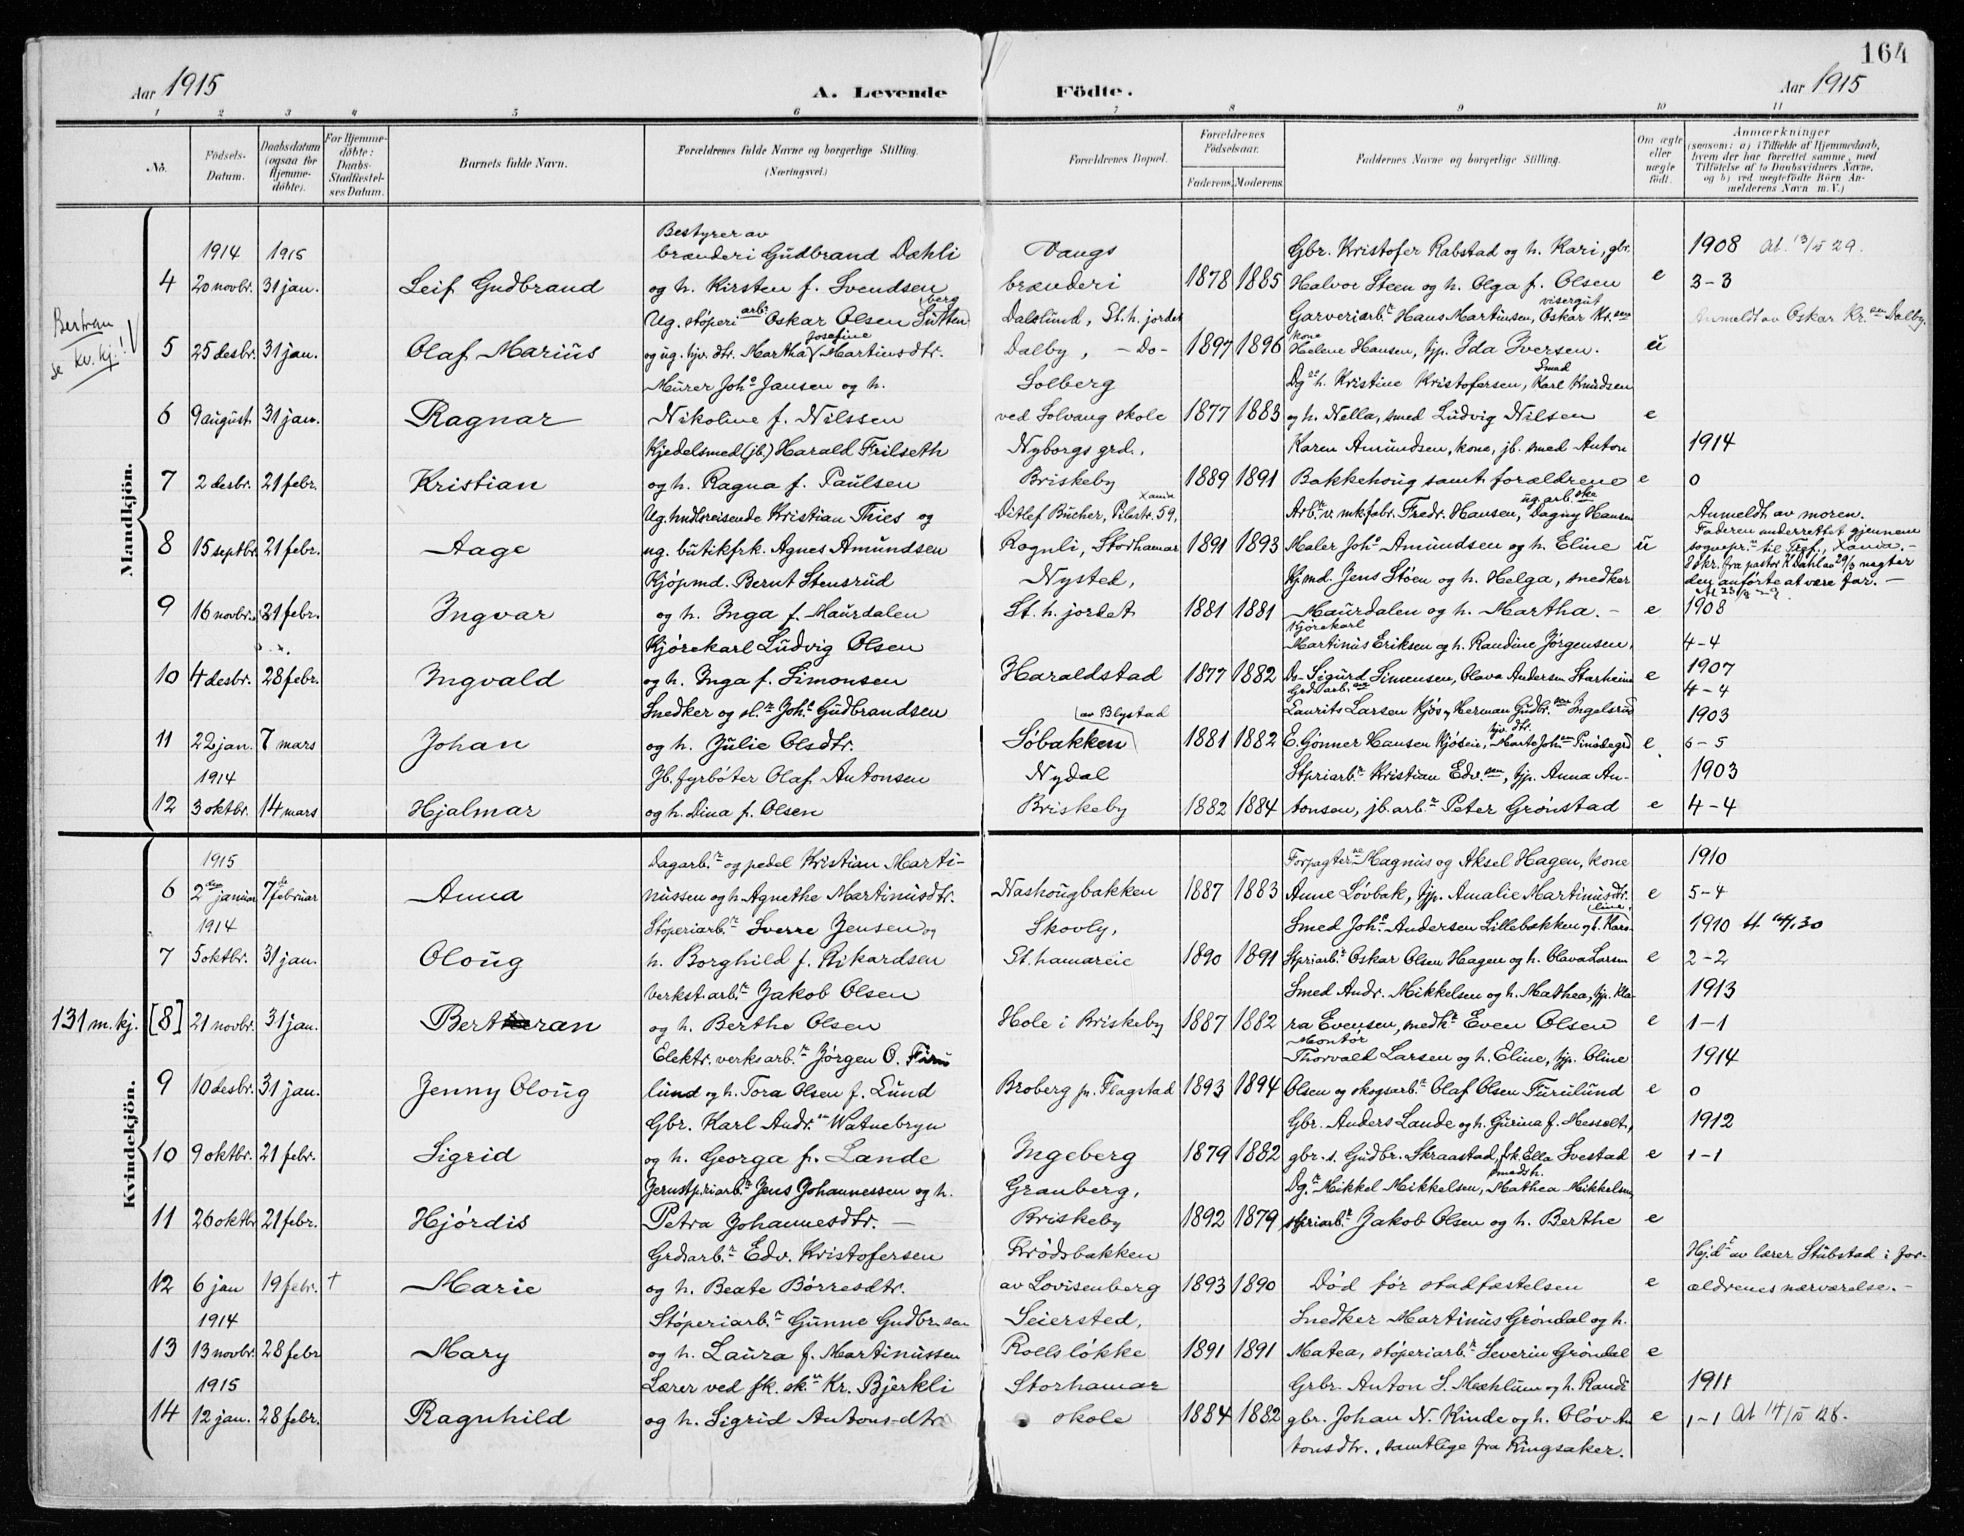 164
Aar 1915 A. Levende Födte. Aar 1915
1 2 3 4 5 6 7 8 9 10 11
No. Födsels-Datum. Daabsdatum (ogsaa for Hjemme-døbte). For Hjemme-døbte: Daabs-Stadfæstel-ses Datum. Barnets fulde Navn. Forældrenes fulde Navne og borgerlige Stilling. (Næringsvei.) Forældrenes Bopæl. Forældrenes Födselsaar. Faderens. Moderens. Faddernes Navne og borgerlige Stilling. Om ægte eller uægte födt. Anmærkninger (saasom: a) i Tilfælde af Hjemmedaab, hvem der har forrettet samme, med Tilföielse af to Daabsvidners Navne, og b) ved uægtefödte Börn An-melderens Navn m. V.)
Mandkjön.
Bestyrer av
1914 1915 brænderi Gudbrand Dæhli Vangs Gbr. Kristofer Rabstad og h. Kari, gbr. 1908 At. 13/5 29.
4 20 novbr. 31 jan. Leif Gudbrand og h. Kirsten f. Svendsen brænderi 1878 1885 Halvor Steen og h. Olga f. Olsen e 3-3
Bertran se kv. kj.!
Ug. støperiarb. Oskar Olsen Dalslund, St. h. jordet Garveriarb.r Hans Martinsen, visergut Oskar Kr.sen Anmeldt av Oskar Kr.sen Dalby.
5 25 desbr. 31 jan. Olaf Marius og ug. hjv. dtr. Martha Josefine Martinsdtr. Dalby, - Do - 1897 1896 kone Helene Hansen, tjp. Ida Iversen. u
Murer Joh.s Jansen og h. Solberg Kristine Kristofersen, Smed Karl Knudsen
6 9 august 31 jan. Ragnar Nikoline f. Nilssen ved Solvang skole 1877 1883 og h. Nella, smed Ludvig Nilsen e
Kjedelsmed (jb.) Harald Frilseth Nyborgs grd., Karen Amundsen, kone, jb. smed Anton 1914
7 2 desbr. 21 febr. Kristian og h. Ragna f. Paulsen Briskeby 1889 1891 Bakkehoug samt forældrene e 0
Ug. hndlsreisende Kristian Thies og Ditlef Bucher, Pilestr. 59, Xania Arb.r v. mkfabr. Fredr. Hansen, ug. arb.ske Dagny Hansen Anmeldt av moren.
8 15 septbr. 21 febr. Aage ug. butikfrk. Agnes Amundsen Rognli, Storhamar 1891 1893 Maler Joh.s Amundsen og h. Eline u Faderen underrettet gjennem sognepr.n til Tref., Xania. -
Kjøpmd. Bernt Stensrud Nysted, Kjmd. Jens Støen og h. Helga, snedker 8 skr. fra pastor K Dahl av 29/3 negter den anførte at være far. -
9 16 novbr. 21 febr. Ingvar og h. Inga f. Maurdalen St. h. jordet 1881 1881 Maurdalen og h. Martha. - e 1908
Kjørekarl Ludvig Olsen Kjørekarl Martinus Eriksen og h. Randine Jørgensen, 4-4
10 4 desbr. 28 febr. Ingvald og h. Inga f. Simonsen Haraldstad 1877 1882 Do - Sigurd Simensen, Olava Andersen Starheim e 1907
4-4
Snedker og sl.r Joh.s Gudbrandsen av Blystad Grdarb.ere Laurits Larsen Kjós, Herman Gudbr.sen Ingelsrud 1903
11 22 jan. 7 mars Johan og h. Julie Olsdtr. Søbakken 1881 1882 E. Gjønner Hansen Kjøsen, hjv. dtr. Marte Joh.sen e 6-5
1914 Jb. fyrbøter Olaf Antonsen Nydal Stpriarb.r Kristian Edv.sen, tjp. Anna An- 1903
12 3 oktbr. 14 mars Hjalmar og h. Dina f. Olsen Briskeby 1882 1884 tonsen, jb. arb.r Peter Grønstad e 4-4
Kvindekjön.
1915 Dagarb.r og pedel Kristian Marti- Forpagterne Magnus og Aksel Hagen, kone 1910
6 2den januar 7de februar Anna nussen og h. Agnethe Martinusdtr. Nashougbakken 1887 1883 Anne Løvbak, tjp. Amalie Martinusdtr. e 5-4
1914 Støperiarb.r Sverre Jensen og Skovly, Smed Joh.s Andersen Lillebakken og h. Karoline, 1910
7 5 oktbr. 31 jan. Oloug h. Borghild f. Rikardsen St. hamareie 1890 1891 Stpriarb.r Oskar Olsen Hagen og h. Olava Larsen e 2-2
Verkst. arb.r Jakob Olsen Smed Andr. Mikkelsen og h. Mathea, tjp. Kla- 1913
131 m. kj. [8] 21 novbr. 31 jan. Bertran og h. Berthe Olsen Hole i Briskeby 1887 1882 ra Evensen, medh.r Even Olsen e 1-1
Elektr. verksarb.r Jørgen O. Furu Montør Thorvald Larsen og h. Eline, tjp. Oline 1914
9 10 desbr. 31 jan. Jenny Oloug lund og h. Tora Olsen f. Lund Broberg pr. Flagstad 1893 1894 Olsen og skogsarb.r Olaf Olsen Furulund e 0
Gbr. Karl Andr.sen Watnebryn Gbr. Anders Lande og h. Gurina f. Hesselt, 1912
10 9 oktbr. 21 febr. Sigrid og h. Georga f. Lande Ingeberg 1879 1882 gbr. s. Gudbr. Skraastad, fk Ella Svestad e 1-1
Jernstpriarb.r Jens Johannessen og h. Granberg, Dg.r Mikkel Mikkelsen, smedsh. Mathea Mikkelsen,
11 26 oktbr. 21 febr. Hjørdis Petra Johannesdtr. - Briskeby 1892 1879 stpriarb.r Jakob Olsen og h. Berthe e
Grdsarb.r Edv. Kristofersen Krødsbakken Hjd.t av lærer Stubstad i for-
12 6 jan 19 febr. † Marie og h. Beate Børresdtr. av Lovisenberg 1893 1890 Død før stadfæstelsen e ældrenes nærværelse. -
1914 Støperiarb.r Gunne Gudbr.sen Seiersted, Snedker Martinus Grøndal og h.
13 13 novbr. 28 febr Mary og h. Laura f. Martinussen Roelsløkke 1891 1891 Matea, støperiarb.r Severin Grøndal e
1915 Lærer ved fk. sk.n Kr. Bjerkli Storhamar Grbr. Anton S. Mæhlum og h. Randi 1911
14 12 jan. 28 febr. Ragnhild og h. Sigrid Antonsdtr. skole 1884 1882 gbr. Johan N. Kinde og h. Oløv An- e 1-1 At 14/5 28.
tonsdtr., samtlige fra Ringsaker.